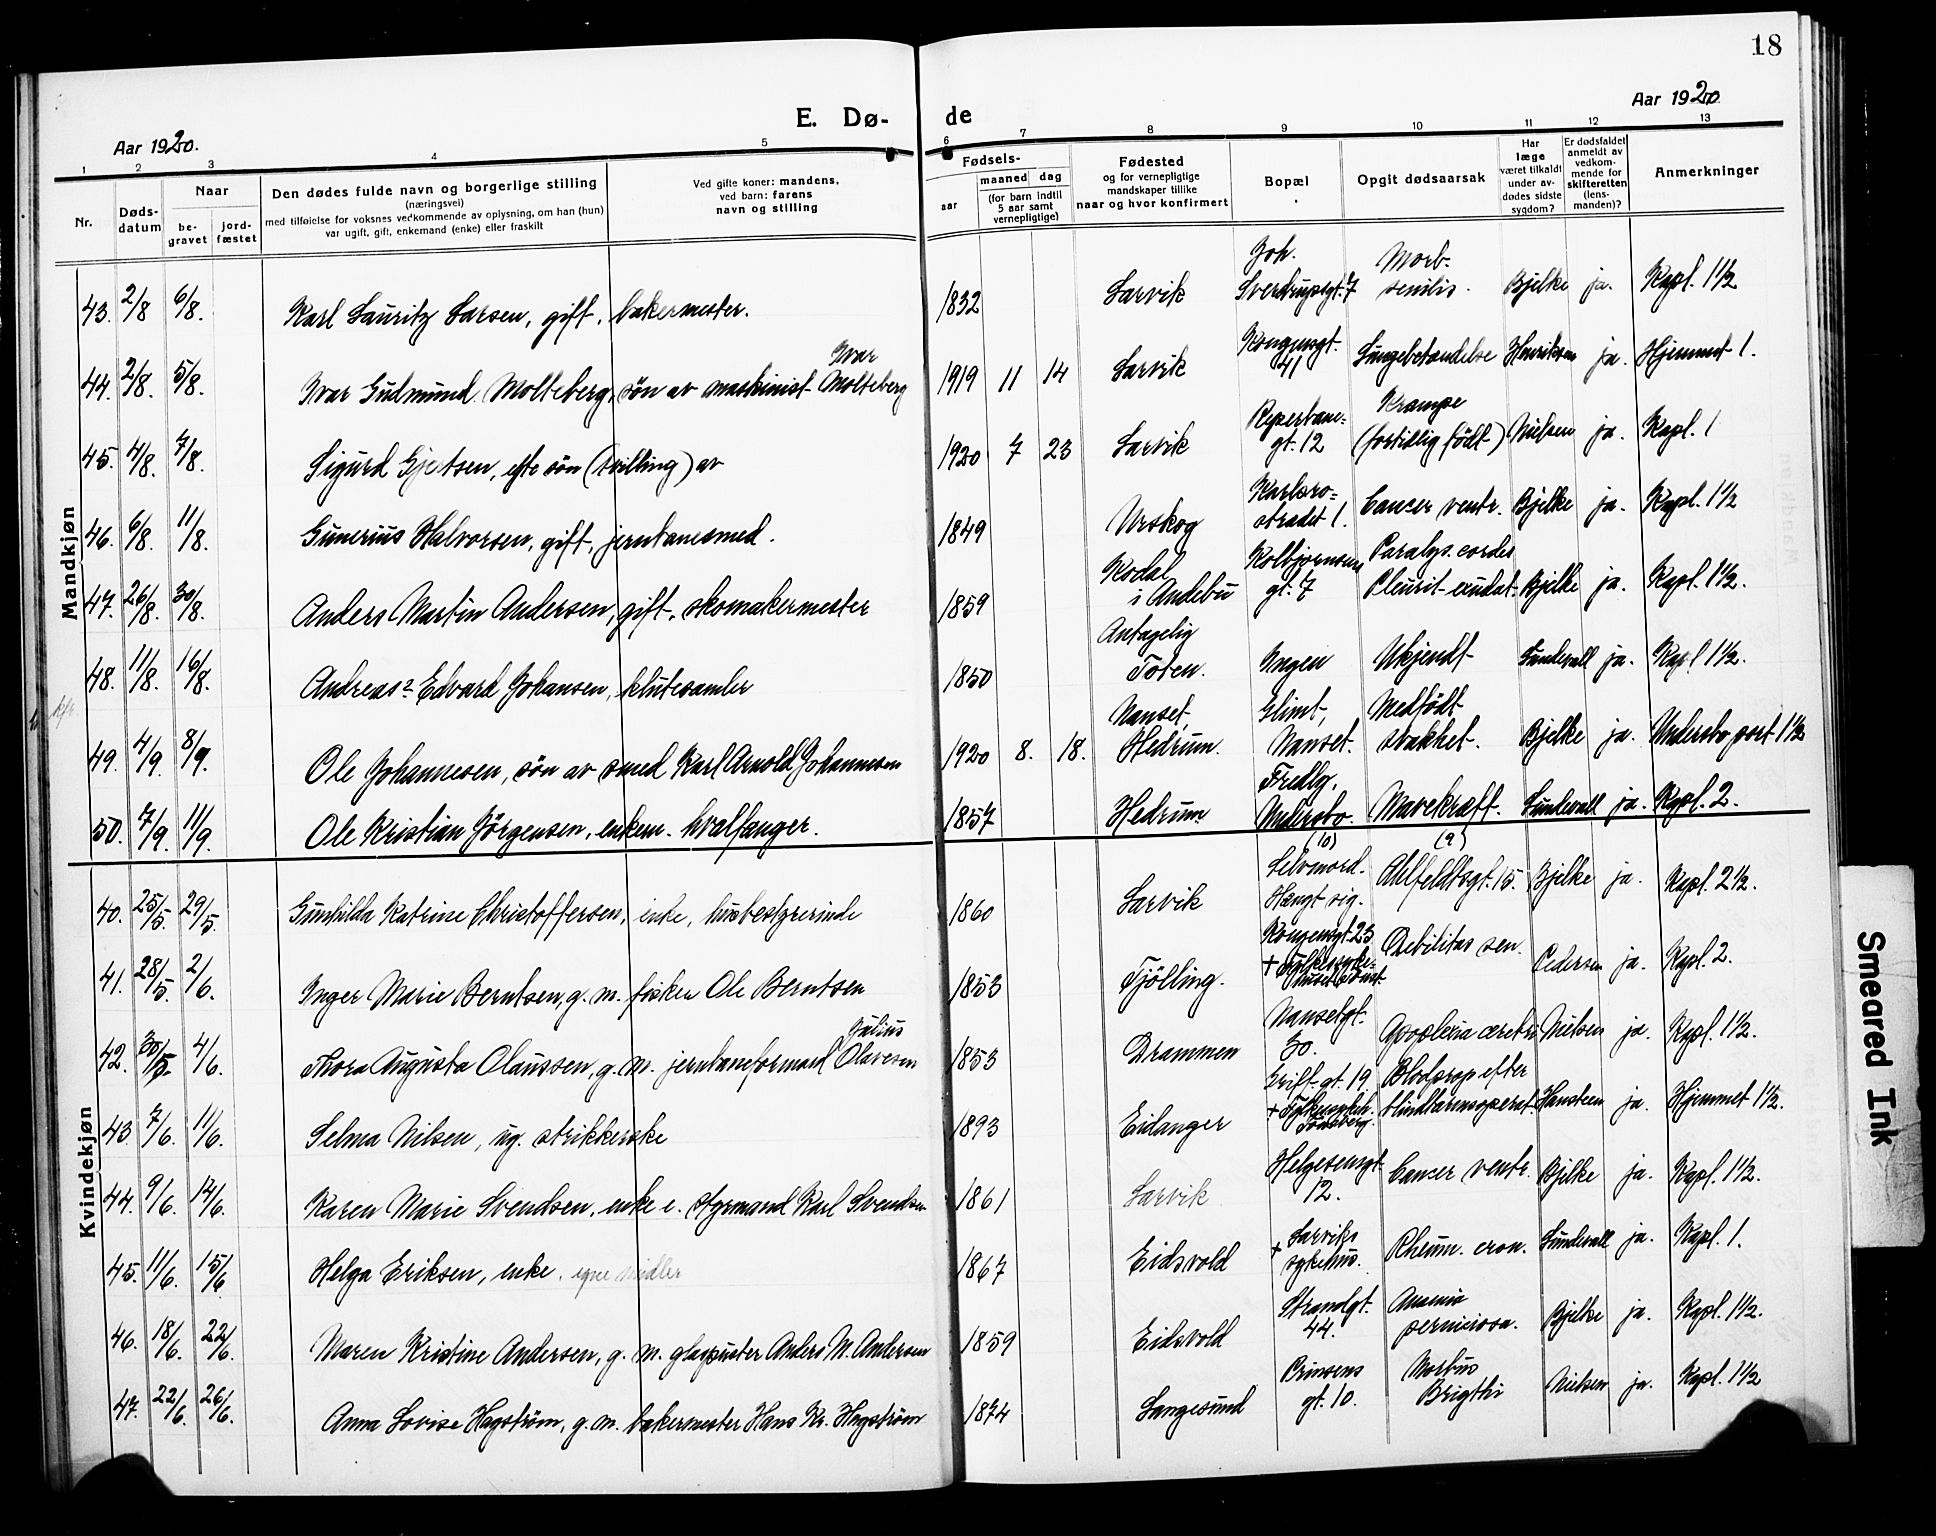 18
Aar 1920.
E. Dø- de
Aar 1920.
1 2 3 4 5 6 7 8 9 10 11 12 13
Nr.
Døds-
datum
Naar
be-
gravet
jord-
fæstet
Den dødes fulde navn og borgerlige stilling
(næringsvei)
med tilføielse for voksnes vedkommende av oplysning, om han (hun)
var ugift, gift, enkemand (enke) eller fraskilt
Ved gifte koner: mandens,
ved barn: farens
navn og stilling
Fødsels-
aar
maaned dag
(for barn indtil
5 aar samt
vernepligtige)
Fødested
og for vernepligtige
mandskaper tillike
naar og hvor konfirmert
Bopæl
Opgit dødsaarsak
Har
læge
været tilkaldt
under av-
dødes sidste
sygdom?
Er dødsfaldet
anmeldt av
vedkom-
mende for
skifteretten
(lens-
manden)?
Anmerkninger
Mandkjøn
43. 2/8 6/8. Karl Lauritz Larsen, gift, bakermester. 1832 Larvik Joh. Sverdrupsgt. 7 Morb. senilis. Bjelke ja. Kapl. 1 1/2
44. 2/8. 5/8. Ivar Gudmund Molteberg, søn av maskinist Ivar Molteberg 1919 11 14 Larvik Kongensgt. 41 Lungebetændelse Henriksen ja. Hjemmet 1.
45. 4/8. 7/8. Sigurd Gjertsen, egte søn (tvilling) av 1920 7 23 Larvik Reperbane- gt. 12 Krampe (fortidlig født) Nielsen ja. Kapl. 1
46. 6/8. 11/8. Gunerius Halvorsen, gift, jernbanesmed. 1849 Urskog Karlsro- strædet 1. Cancer ventr. Bjelke ja. Kapl. 1 1/2
47. 26/8. 30/8. Anders Martin Andersen, gift, skomakermester 1859 Kodal i Andebu Kolbjørnsens gt. 7 Paralys. cordis Pleurit exudat. Bjelke ja. Kapl. 1 1/2.
48. 11/8. 16/8. Andreas? Edvard Johansen, klutesamler 1850 Antagelig Toten. Ingen Ukjendt Sundevall ja. Kapl 1 1/2.
49. 4/9. 8/9. Ole Johannesen, søn av smed Karl Arnold Johannesen 1920 8. 18. Nanset, Hedrum. Glimt, Nanset. Medfødt svakhet. Bjelke ja. Undersbo port 1 1/2
50. 7/9. 11/9. Ole Kristian Jørgensen, enkem. hvalfanger. 1857 Hedrum Fredly, Undersbo. Mavekræft. Sundevall ja. Kapl. 2.
Kvindekjøn
40. 25/5. 29/5. Gunhilda Katrine Christoffersen, enke, husbestyrerinde 1860 Larvik (10) Selvmord. Hængt sig. (9) Ahlfeldtsgt. 15. Bjelke ja. Kapl. 2 1/2.
41. 28/5. 2/6. Inger Marie Berntsen, g. m. fisker Ole Berntsen 1853 Tjølling. Kongensgt. 23 Debilitas sen. Pedersen ja. Kapl. 2.
42. 30/5. 4/6. Thora Augusta Olaussen, g. m. jernbaneformand Julius Olavesen 1853 Drammen Nansetgt. 30. Apoplexia cerebri Nielsen ja. Kapl. 1 1/2.
43. 7/6. 11/6. Selma Nilsen, ug. strikkerske 1893 Eidanger Grift. gt. 19 + Fylkessykeh. Tønsberg. Blodprop efter blindtarmsoperat. Hansteen ja. Hjemmet 1 1/2.
44. 9/6. 14/6. Karen Marie Svendsen, enke e. styrmand Karl Svendsen 1861 Larvik Helgesensgt 12. Cancer ventr. Bjelke ja. Kapl. 1 1/2.
45. 11/6. 15/6 Helga Eriksen, enke. egne midler 1867 Eidsvold + Larviks sykehus. Rheum. cron. Sundevall ja. Kapl. 1.
46. 18/6. 22/6. Maren Kristine Andersen, g. m. glaspuster Anders M. Andersen 1859 Eidsvold Strandgt. 44. Anæmia perniciosa. Bjelke ja. Kapl. 1 1/2.
47. 22/6. 26/6. Anna Lovise Hagstrøm, g. m. bakermester Hans Kr. Hagstrøm 1874 Langesund Prinsens gt. 10. Morbus Brigthi Nielsen ja. Kapl. 1 1/2
Smeared Ink